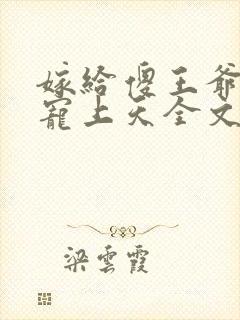 嫁給傻王爺
寵上天全文
梁雲霞